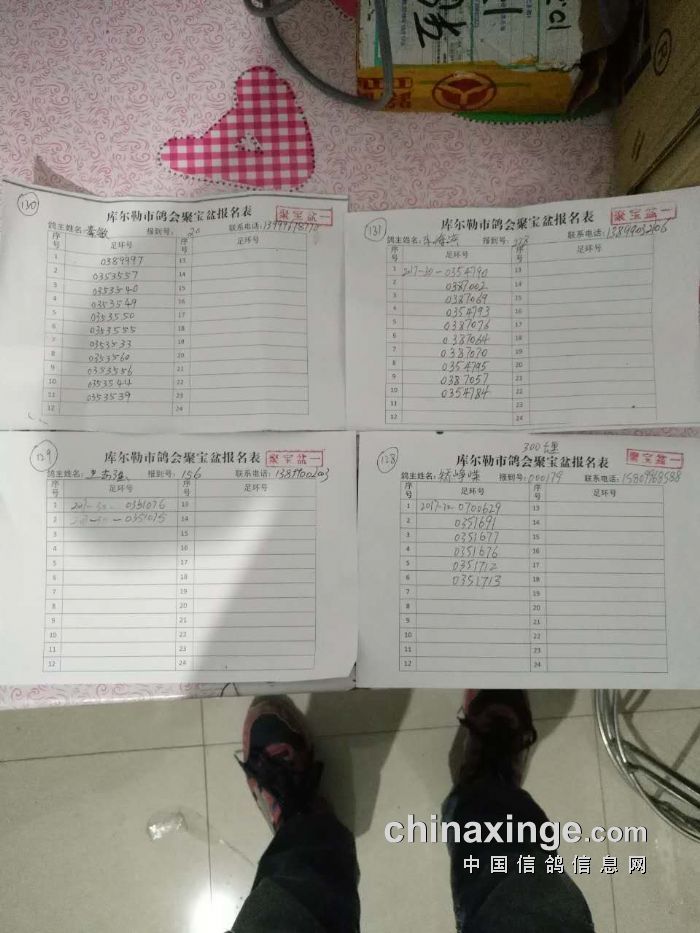 130
库尔勒市鸽会聚宝盆报名表
聚宝盆一
鸽主姓名: 敏 报到号: 20 联系电话:
序号 足环号 序号 足环号
1 0389997 13
2 0353557 14
3 0353540 15
4 0353549 16
5 0353550 17
6 0353555 18
7 0353533 19
8 0353560 20
9 0353556 21
10 0353544 22
11 0353539 23
12 24
131
库尔勒市鸽会聚宝盆报名表
聚宝盆一
鸽主姓名: 报到号: 278 联系电话: 13899032106
序号 足环号 序号 足环号
1 2017-30-0354790 13
2 0387002 14
3 0387069 15
4 0354793 16
5 0387076 17
6 0387064 18
7 0387070 19
8 0354795 20
9 0387057 21
10 0354784 22
11 23
12 24
129
库尔勒市鸽会聚宝盆报名表
聚宝盆一
鸽主姓名: 报到号: 156 联系电话:
序号 足环号 序号 足环号
1 2017-30-0351076 13
2 2017-30-0351075 14
3 15
4 16
5 17
6 18
7 19
8 20
9 21
10 22
11 23
12 24
128
300
库尔勒市鸽会聚宝盆报名表
聚宝盆一
鸽主姓名: 报到号: 000179 联系电话: 15809968588
序号 足环号 序号 足环号
1 2017-30 0700629 13
2 0351691 14
3 0351677 15
4 0351676 16
5 0351712 17
6 0351713 18
7 19
8 20
9 21
10 22
11 23
12 24
chinaxinge.com
中国信鸽信息网